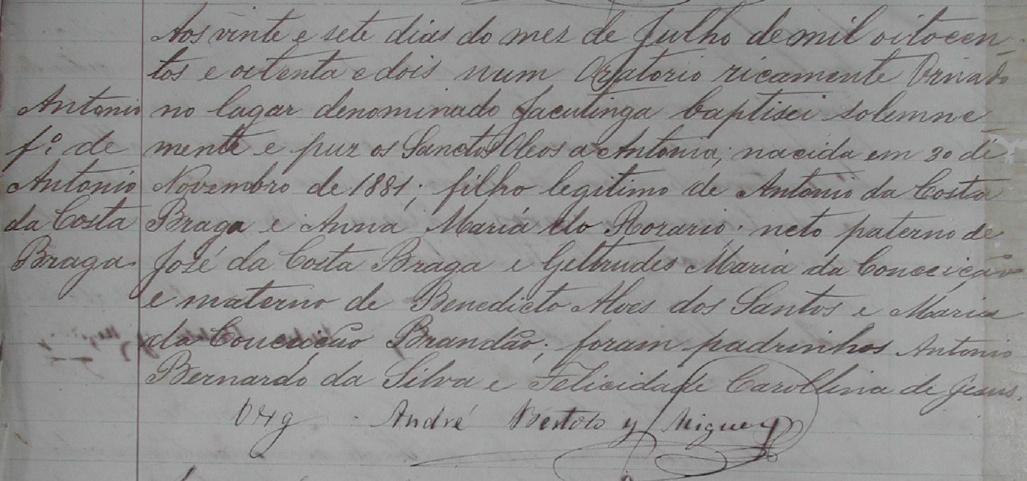 Aos vinte e sete dias do mez de Julho de mil oitocen-
tos e oitenta e dois num Oratorio ricamente Ornado
Antonio no lagar denominado Jacutinga baptisei solemne
fº. de mente e puz os Sanctos Oleos a Antonia; nacida em 30 de
Antonio Novembro de 1881; filho legitimo de Antonio da Costa
da Costa Braga e Anna Maria do Rosario. neto paterno de
Braga. José da Costa Braga e Geltrudes Maria da Conceição
e materno de Benedicto Alves dos Santos e Maria
da Conceição Brandão; foram padrinhos Antonio
Bernardo da Silva e Felicidade Carollina de Jesus.
André Bertoto y Miguez